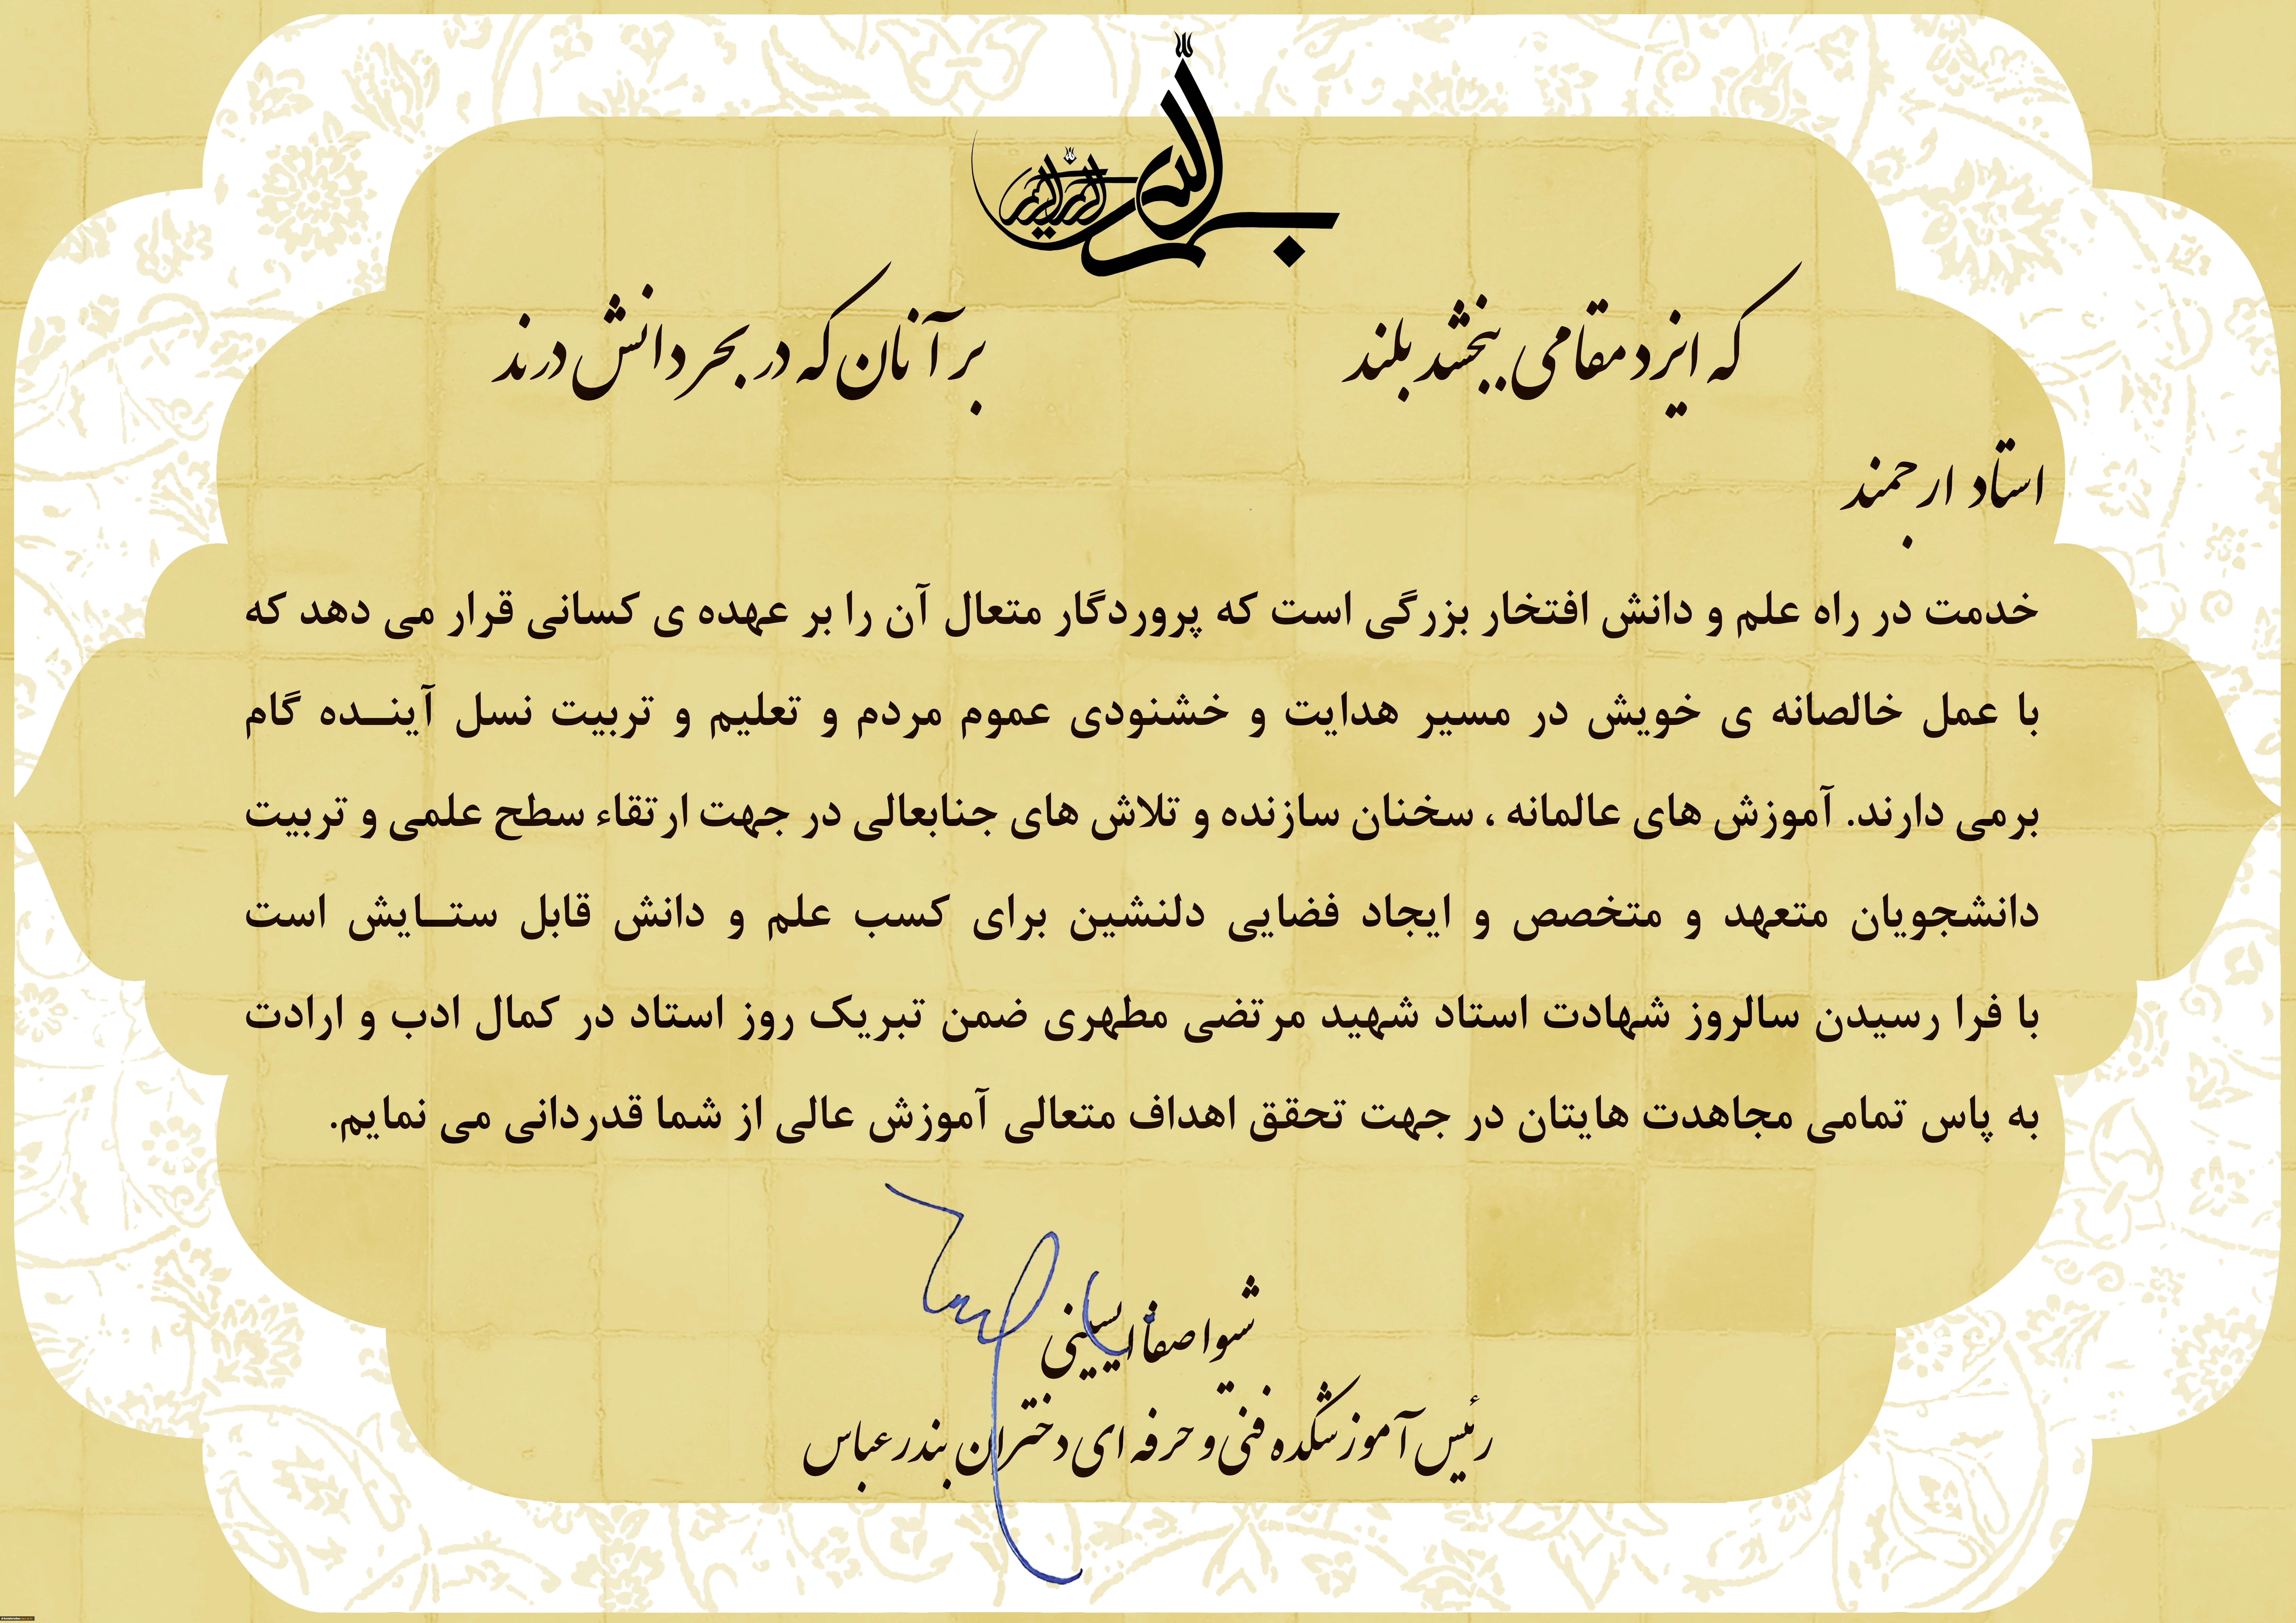 بسم الله الرحمن الرحیم
که ایزد مقامی ببخشد بلند بر آنان که در بحر دانش درند
استاد ارجمند
خدمت در راه علم و دانش افتخار بزرگی است که پروردگار متعال آن را بر عهده ی کسانی قرار می دهد که
با عمل خالصانه ی خویش در مسیر هدایت و خشنودی عموم مردم و تعلیم و تربیت نسل آینــده گام
برمی دارند. آموزش های عالمانه ، سخنان سازنده و تلاش های جنابعالی در جهت ارتقاء سطح علمی و تربیت
دانشجویان متعهد و متخصص و ایجاد فضایی دلنشین برای کسب علم و دانش قابل ستــایش است
با فرا رسیدن سالروز شهادت استاد شهید مرتضی مطهری ضمن تبریک روز استاد در کمال ادب و ارادت
به پاس تمامی مجاهدت هایتان در جهت تحقق اهداف متعالی آموزش عالی از شما قدردانی می نمایم.
شیوا صفا
رئیس آموزشکده فنی و حرفه ای دختران بندرعباس